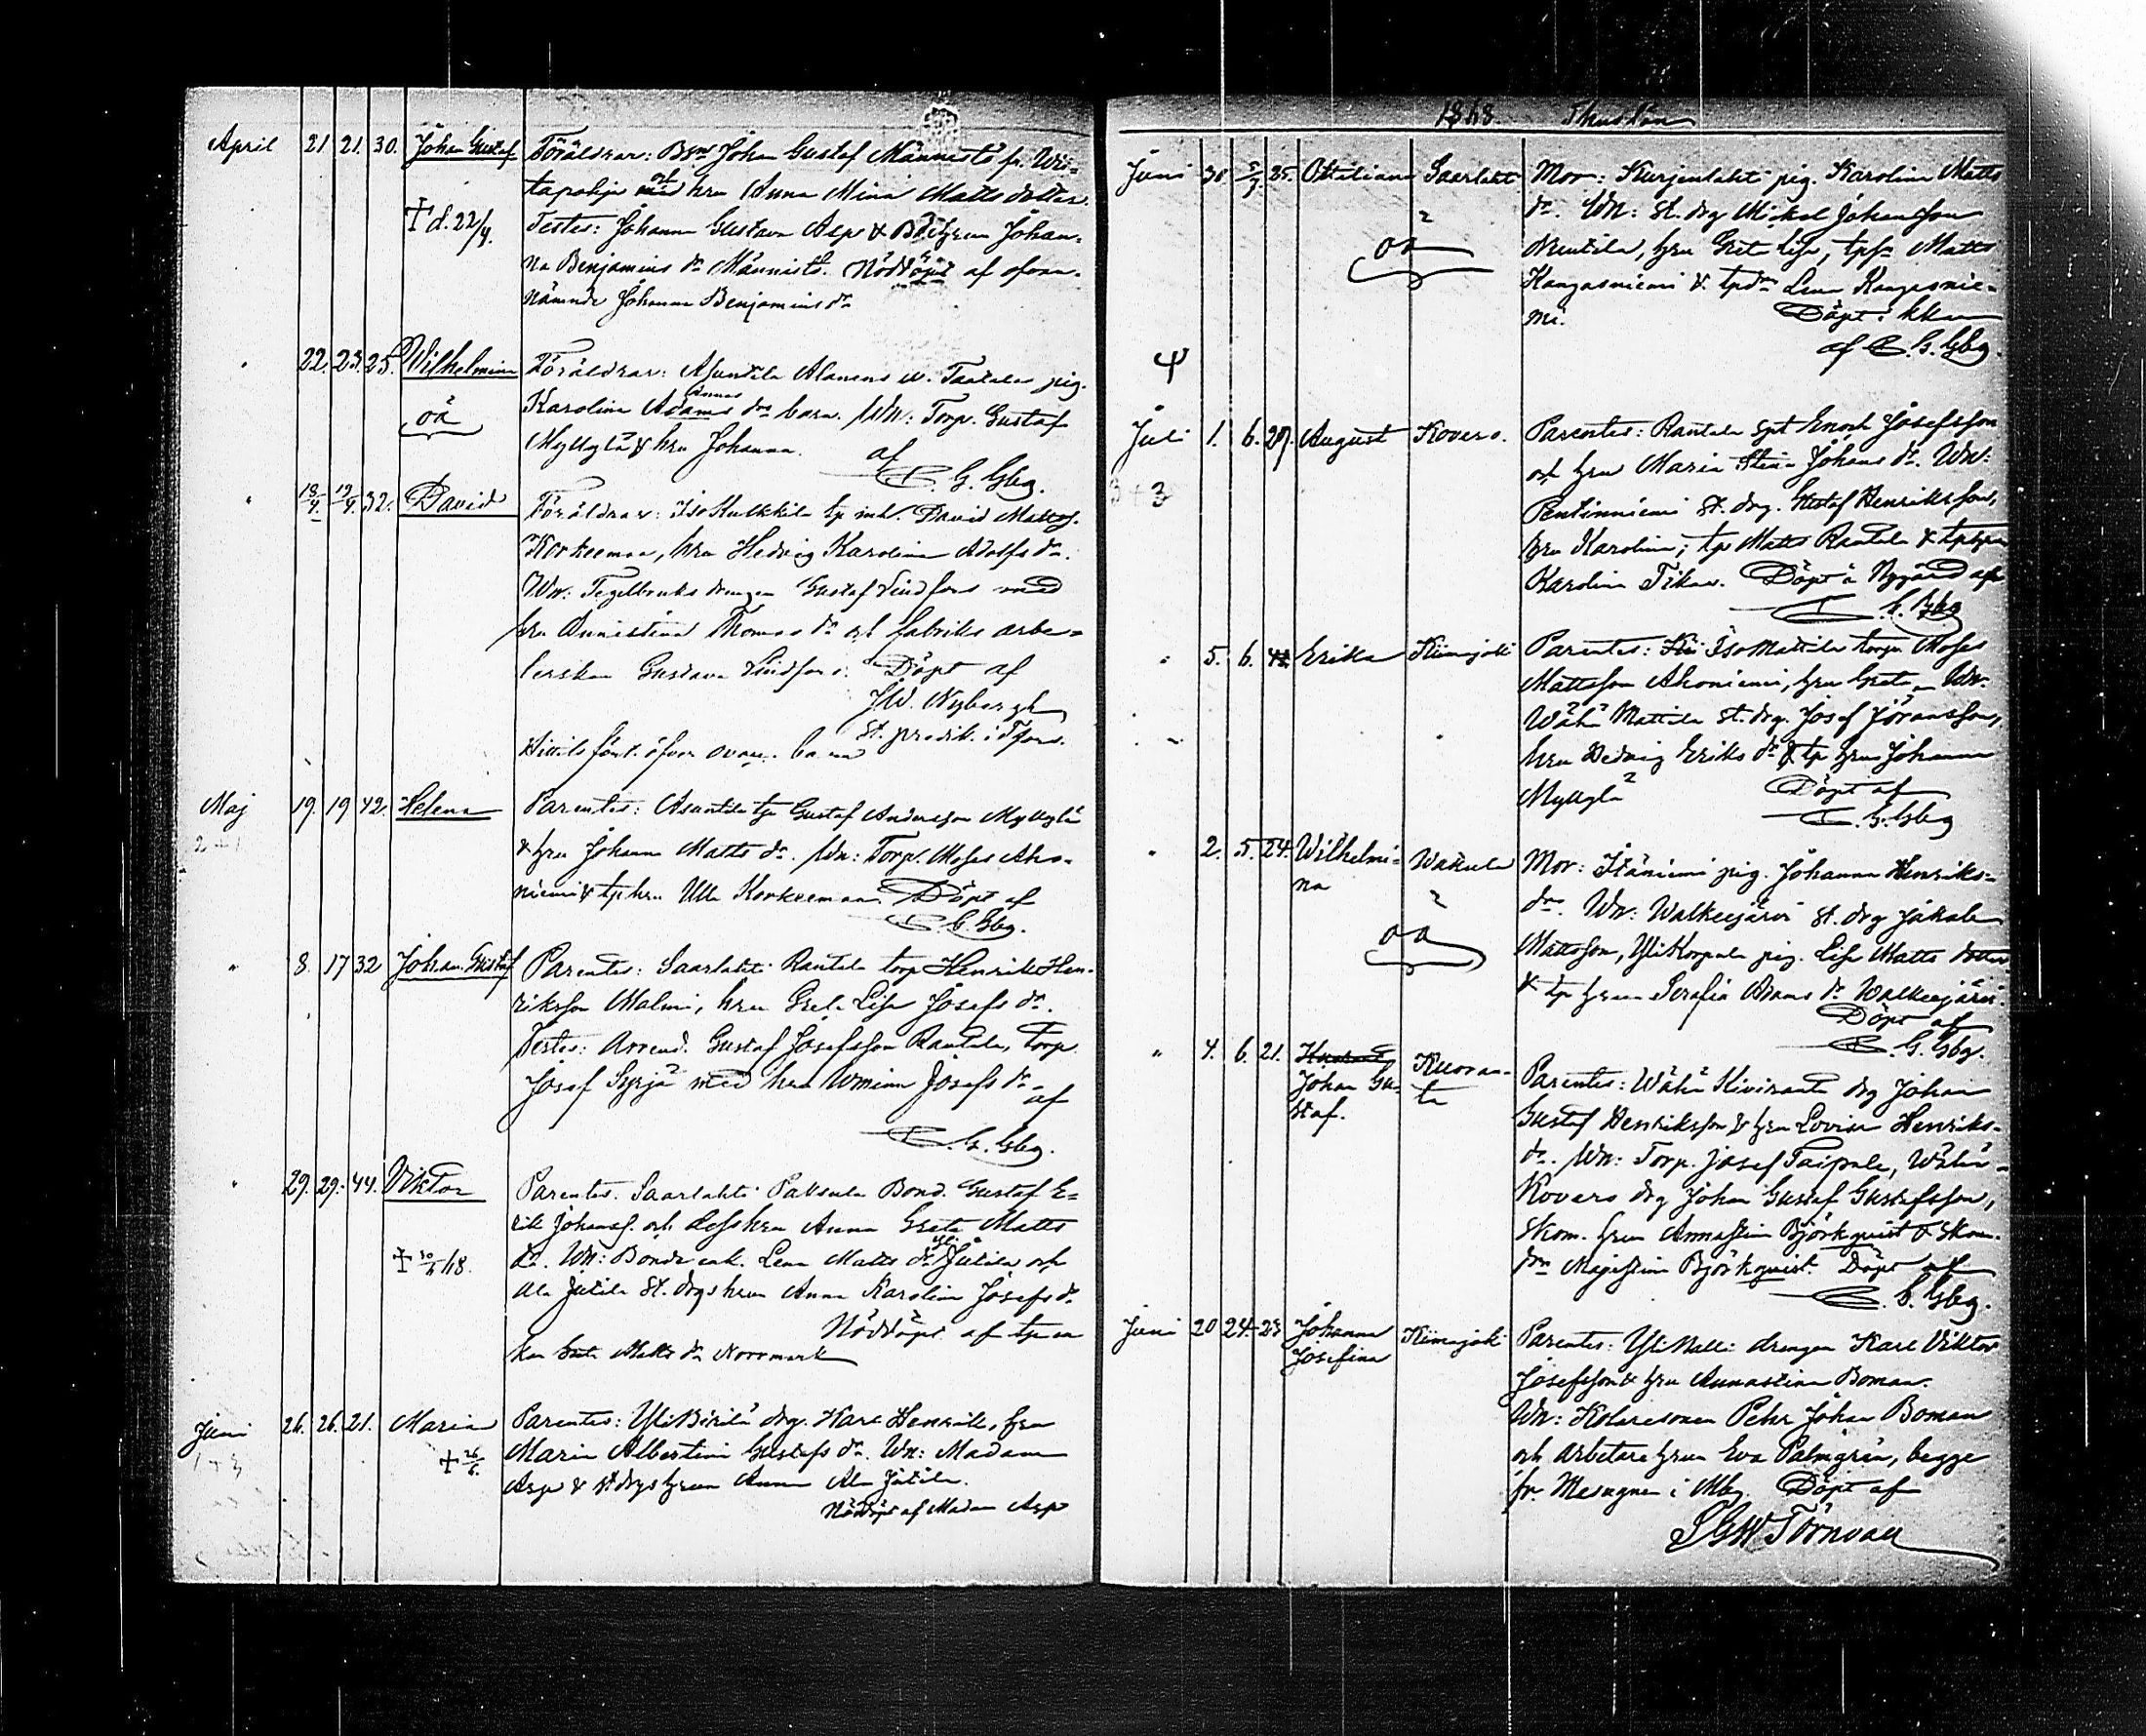 April 21 21. 30. Johan Gustaf Föräldrar: Johan Gustaf Männistö fr. Wii=
tapohja och hru Anna Mina Matts dotter.
+ d. 22/4. Testes: Johanna Gustava Asp & Johan=
na Benjamins dr Männistö. Nöddöpt af ofvan=
nämnde Johanna Benjamins dr
22. 23. 25. Wilhelmina Föräldrar: Asuntila Alanens pig.
oä Karolina Adams drs barn. Wn: Torp. Gustaf
Myllylä & hru Johanna. af
C. G. Gbg.
18/4. 19/4. 32. David Föräldrar: Iso Kulkkila tp inh. David Matts.
Korkeemaa, hru Hedvig Karolina Adolfs dr.
Wn: Tegelbruks drengen Gustaf Lindfors med
hru Annastina Thomas dr och fabriks arbe=
terskan Gustava Lindfors. Döpt af
J.W. Nyberg
st. predik. i Tfors.
Maj 19. 19 42. Helena Parentes: Asuntila tp Gustaf Andersson Myllylä
& hru Johanna Matts dr. Wn: Torp. Moses Aho=
niemi & tp hru Ulla Korkeemaa. Döpt af
C. G. Gbg.
" 8. 17 32 Johan Gustaf Parentes: Saarlahti Rantala torp Henrik Hen=
riksson Malmi, hru Greta Lisa Josefs dr.
Testes: Arrend. Gustaf Josefsson Rantala, Torp
Josef Syrjä med hru Wmina Josefs dr
af
C. G. Gbg.
29. 29. 44. Viktor Parentes. Saarlahti Paksula Bond. Gustaf E=
rik Johanss. och dess hru Anna Greta Matts
+ 30/5 68. dr. Wn: Bonde enk. Lena Matts dr Yli Jutila och
Ala Jutila st. drgs hrun Anna Karolina Josefs dr
Nöddöpt af tpen
hu Greta Matts dr Norrmark
Juni 26. 26. 21. Maria Parentes: Yli drg. Karl Henrik, hru
Maria Albertina Gustafs dr. Wn: Madam
+ 26/6. Asp & st drgs hrun Anna Ala Jutila.
Nöddöpt af Madam Asp
1868
Juni 30 5/7. 25. Ottiliana Saarlaht Mor: Kurjenlahti pig. Karolina Matts
dr. Wn: st. drg Mikel Johansson
oä hru Greta Lisa, Matts
Kangasniemi & Lena Kangasnie=
mi. Döpt i kkan
af C. G. Gbg.
Juli 1. 6. 27. August Kovero. Parentes: Rantala Enoch Josefsson
och hru Maria Stina Johans dr. Wn:
Pentinniemi st. drg. Gustaf Henriksson,
hru Karolina; tp Matts Rantala & tphru
Karolina Tikan. Döpt å Nygård af
C. G. Gbg
5. 6. Erika Kiimajoki Parentes: Iso Mattila torp. Moses
Mattsson Ahoniemi, hru Greta. Wn.
Wähä Mattila st. drg. Josef Göransson,
hru Hedvig Eriks dr & tp hru Johanna
Myllylä Döpt af
C. G. Gbg
" 2. 5. 24. Wilhelmi= Mor: Itäniemi pig. Johanna Henriks=
na dr. Wn: Walkeejärvi st. drg Jakob
oä Mattsson, Yli Korpula pig. Lisa Matts dotter
& tp hrun Serafia Adams dr Walkeejärvi.
Döpt af
C. G. Gbg.
" 4. 6. 21. Johan Gu= Kuoran= Parentes: Wähä Kiviranta drg Johan
staf. ta Gustaf Henriksson & hru Lovisa Henriks=
dr. Wn: Torp. Josef Taipale, Wähä=
Kovero drg Johan Gustaf Gustafsson,
skom. hrun Annastina Björkqvist & skom.
drn Majastina Björkqvist. Döpt af
C. G. Gbg.
Juni 20 24 23 Johanna Kiimajoki Parentes: Yli Nalli drengen Karl Viktor
Josefina Josefsson & hru Annastina Boman.
Wn: Kolaresonen Pehr Johan Boman
och arbetare hrun Eva Palmgrén, begge
fr. Messugnen i Mby. Döpt af
Törnvall